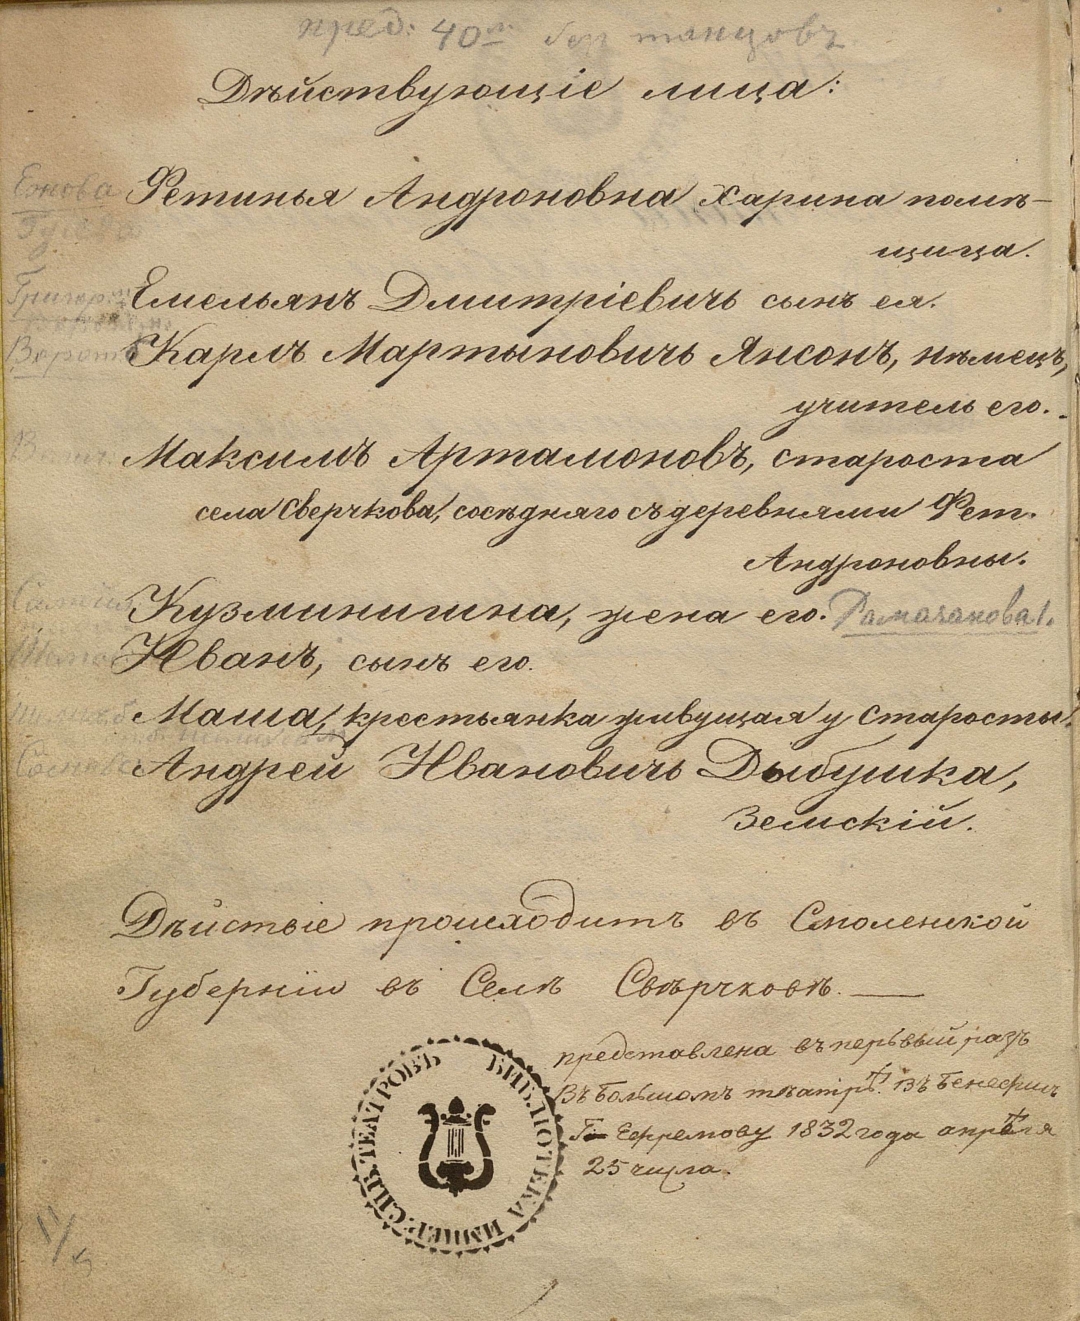 пред: 40 без танцовъ
Дѣйствующіе лица:
Ежова
Фетинья Андроновна Харина помѣ-
щица.
Гусева
Емельянъ Дмитріевичь сынъ ея.
Григор:
Карлъ Мартыновичь Янсонъ, нѣмецъ,
учитель его.
Максимъ Артамоновъ, староста
села Сверчкова, сосѣдняго съ деревнями Фет.
Андроновны.
Кузминишна, жена его. Рамазанова 1.
Иванъ, сынъ его.
Маша, крестьянка живущая у старосты.
Андрей Ивановичь Дыбушка,
Земскій.
Дѣйствіе происходитъ въ Смоленской
Губерніи въ Селѣ Свѣрчковѣ.
представлена въ перьвый разъ
Въ большомъ театрѣ. Въ бенефисъ
Г- Ефремову 1832 года апрѣля
25 числа.
БИБЛІОТЕКА ИМПЕР. СПБ. ТЕАТРОВЪ